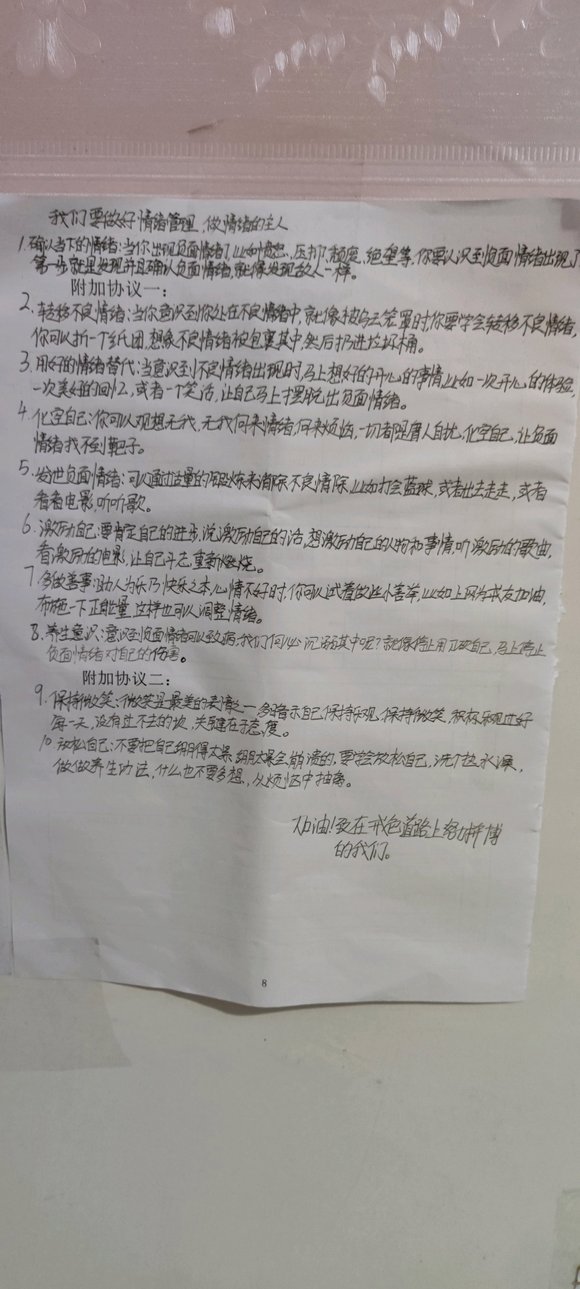 我们要做好情绪管理,做情绪的主人
1.确认当下的情绪:当你出现负面情绪了,比如愤怒、压抑、颓废、绝望等,你要认识到负面情绪出现了
第一步就是发现并且确认负面情绪,就像发现敌人一样。
附加协议一:
2.转移不良情绪:当你意识到你处在不良情绪中,就像被乌云笼罩时,你要学会转移不良情绪,
你可以折一个纸团,想象不良情绪被包裹其中,然后扔进垃圾桶。
3.用好的情绪替代:当意识到不良情绪出现时,马上想好的开心的事情,比如一次开心的体验,
一次美好的回忆,或者一个笑话,让自己马上摆脱出负面情绪。
4.化空自己:你可以观想无我,无我何来情绪,何来烦恼,一切都是庸人自扰,化空自己,让负面
情绪找不到靶子。
5.发泄负面情绪:可以通过适量的锻炼来消除不良情除,比如打会蓝球,或者出去走走,或者
看看电影,听听歌。
6.激励自己:要肯定自己的进步,说激励自己的话,想激励自己的人物和事情,听激励的歌曲,
看激励的电影,让自己斗志重新燃烧。
7.多做善事:助人为乐乃快乐之本,心情不好时,你可以试着做些小善举,比如上网为戒友加油,
布施一下正能量,这样也可以调整情绪。
8.养生意识:意识到负面情绪可以致病,我们何必沉溺其中呢?就像停止用刀砍自己,马上停止
负面情绪对自己的伤害。
附加协议二:
9.保持微笑:微笑是最美的表情之一,多暗示自己保持乐观,保持微笑,积极乐观过好
每一天,没有过不去的坎,关键在于态度。
10.放松自己:不要把自己绷得太累,绷太累会崩溃的,要学会放松自己,洗个热水澡,
做做养生功法,什么也不要多想,从烦恼中抽离。
加油!致在戒色道路上努力拼博
的我们。
8